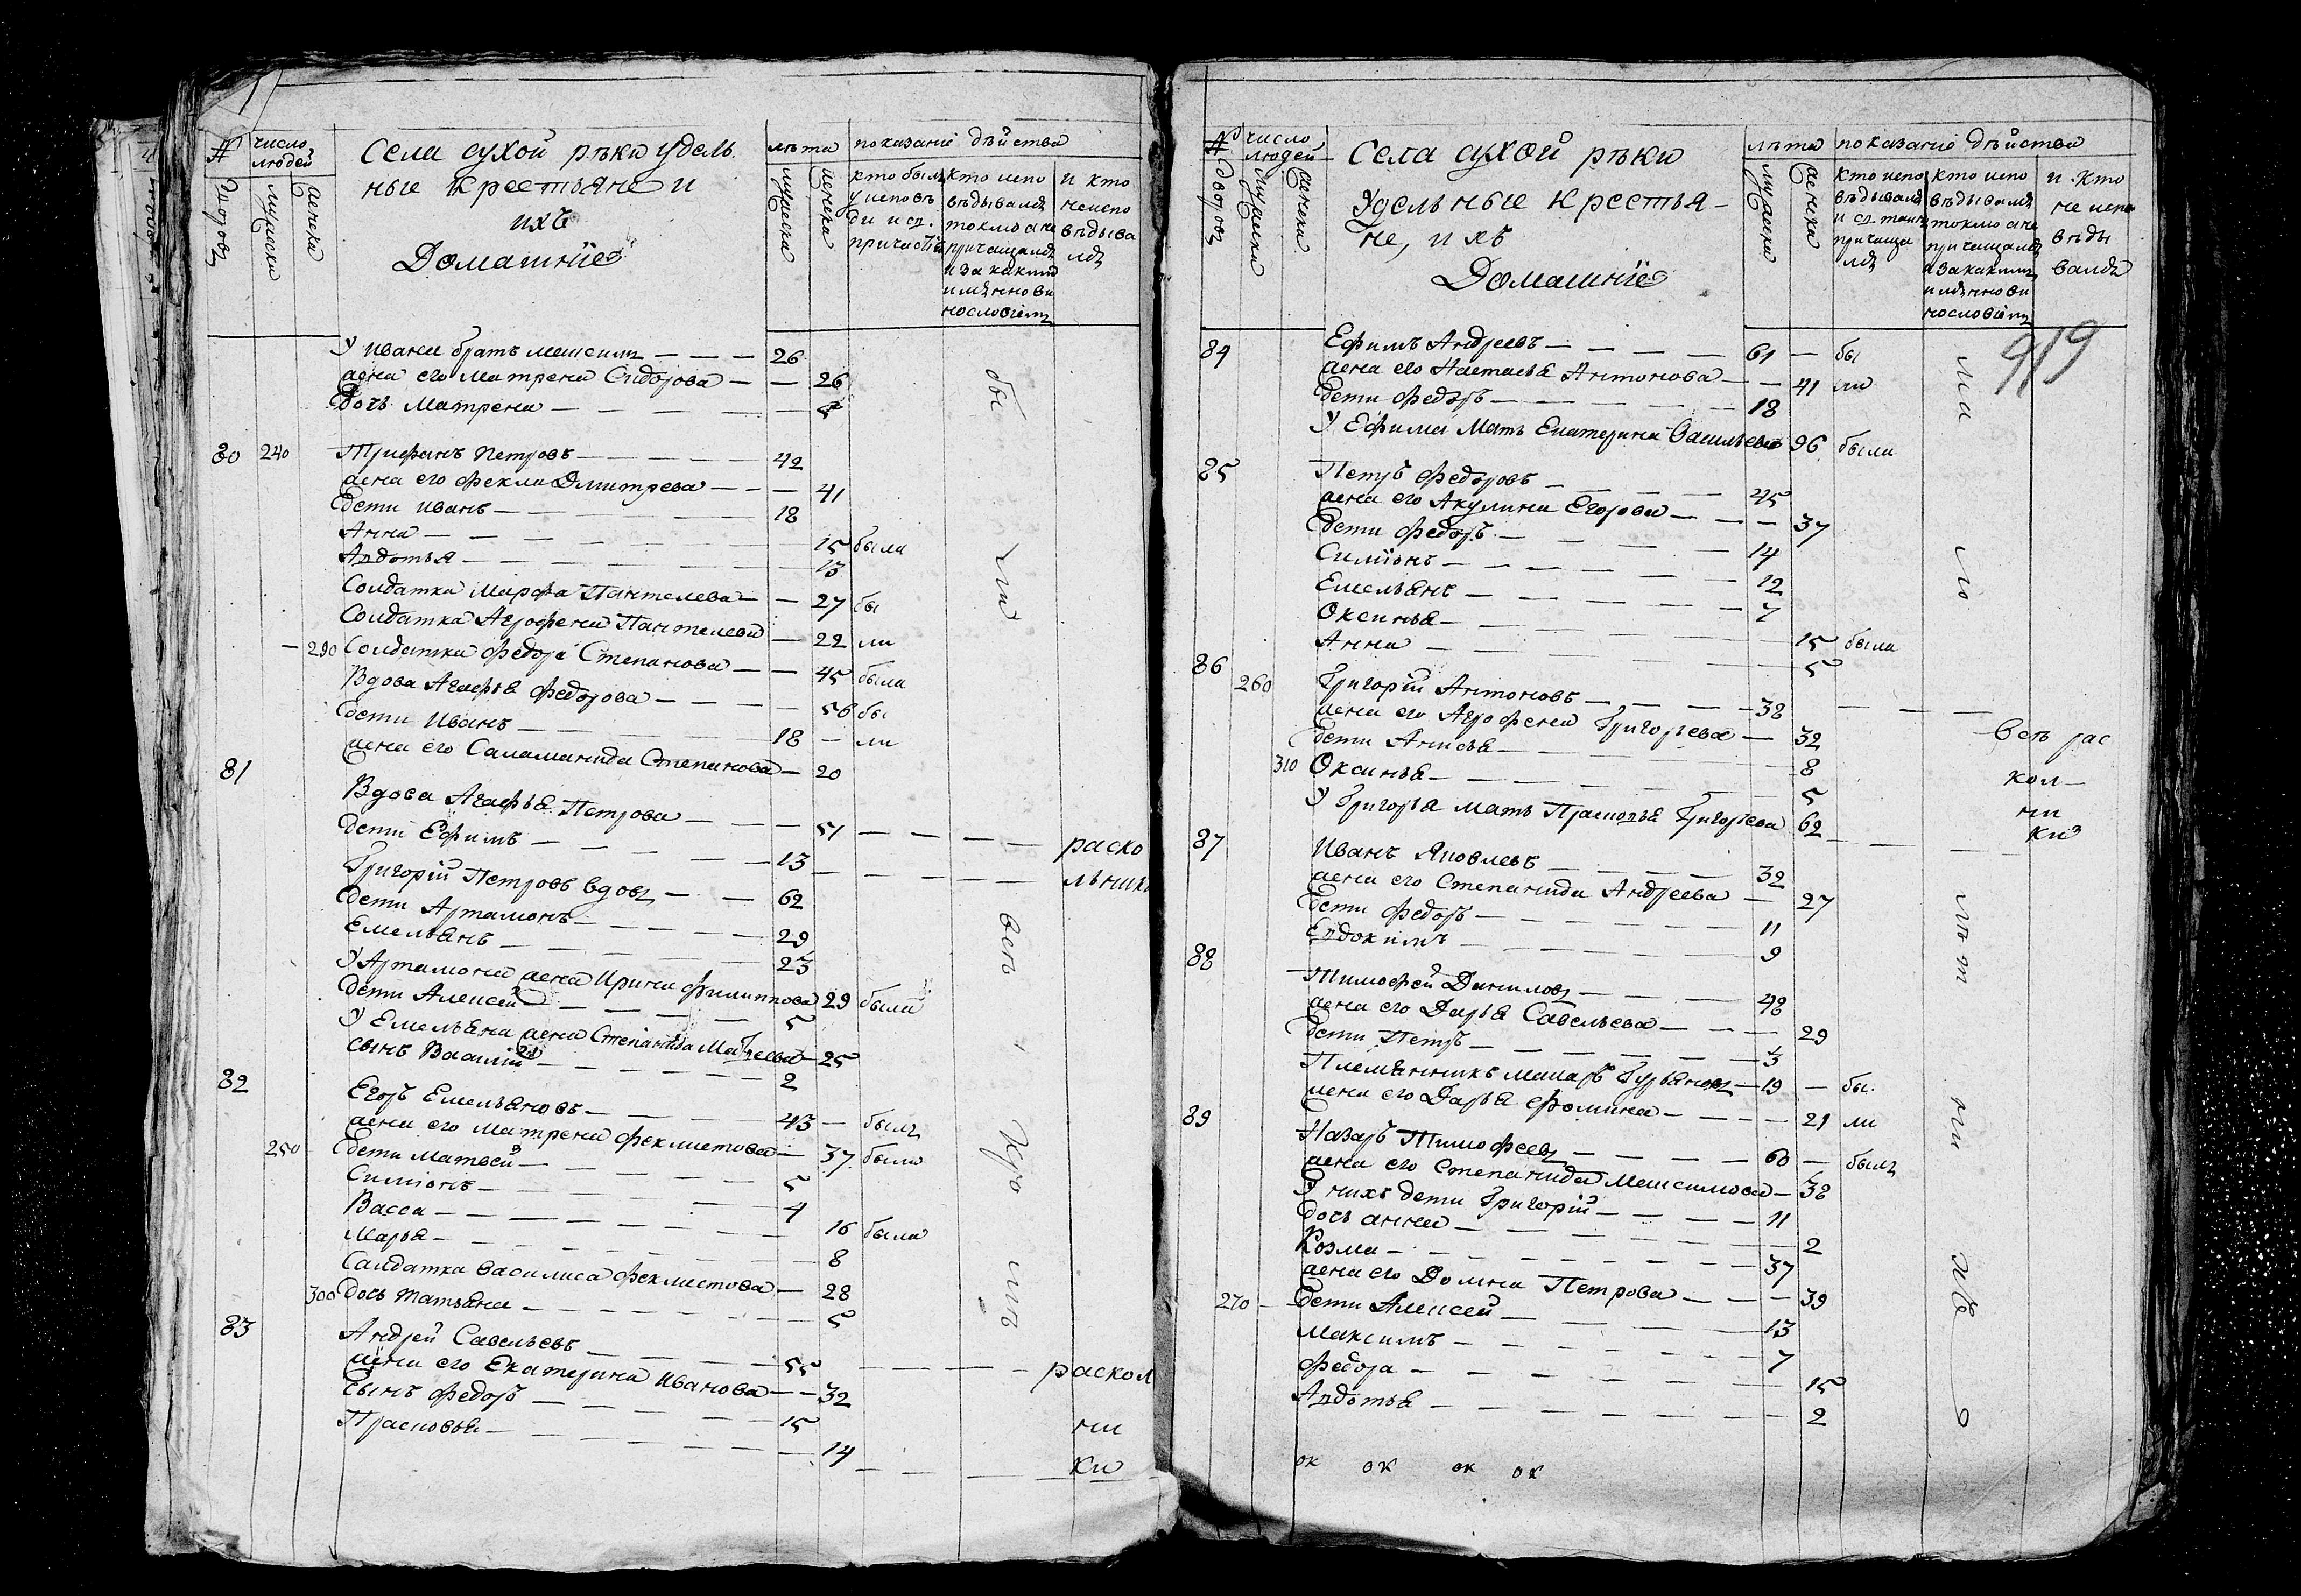 № число людей
Села сухой рѣки удель
ные крестьяне и
ихъ
Домашние
лѣта показание дѣйства
дворовъ мужеска женска
мужеска женска
кто былъ у исповѣди и св. причастiя
кто исповѣдывался токмо а не причащался и за какимъ имянно винословiемъ
и кто неисповѣдывался
У ивана братъ максимъ — — — 26
жена его матрена Сидорова — — 26
Дочь матрена — — — 5
80 240 Трифанъ петровъ — — — 42
жена его фекла Дмитрева — — — 41
Дети иванъ — — — 18
Анна — — — 15 была
Авдотья — — — 13
Солдатка марфа Пантелева — — 27 бы
Солдатка Агрофена Пантелева — 22 ли
290 Солдатка федора Степанова — — 45 была
Вдова Агафья федорова — — — 56 бы
Дети иванъ — — — 18 — ли
жена его Саламанида Степанова — 20
81
Вдова Агафья Петрова — — — 51 — — — раско
Дети Ефимъ — — — 13 — — — льники
Григорiй Петровъ вдовъ — — 62
Дети Артамонъ — — — 29
Емельянъ — — — 23
У Артамона жена Ирина филиппова 29 была
Дети Алексей — — — 5
У Емельяна жена Степанида Матвеева — 25
сынъ Василiй — — — 2
82
Егоръ Емельяновъ — — — 43 — былъ
жена его матрена феклистова — 37 была
250 Дети матвей — — — 5
Симiонъ — — — 4
Васса — — — 16 была
марья — — — 8
Салдатка василиса феклистова — 28
300 Дочь татьяна — — — 5
83
Андрей Савельевъ — — — 55 — — — раскол
жена его Екатерина иванова — — 32
Сынъ федоръ — — — 15 ни
Прасковья — — — 14 — — — ки
бы
ли
№ число людей
Села сухой рѣки
Удельные крестья-
не, ихъ
Домашние
лѣта показание дѣйства
дворовъ мужеска женска
мужеска женска
кто исповѣдывался и св. таинъ причащался
кто исповѣдывался токмо а не причащался и за какимъ имянно винословiемъ
и кто не исповѣдывался
919
84 Ефимъ Андреевъ — — — 61 — бы
жена его Настасья Антонова — — 41 ли
Дети федоръ — — — 18
У Ефима Мать Екатерина Васильева 96 была
85
Петръ федоровъ — — — 45
жена его Акулина Егорова — — — 37
Дети федоръ — — — 14
Симiонъ — — — 12
Емельянъ — — — 7
Оксинья — — — 15 была
Анна — — — 5
86 260 Григорiй Антоновъ — — — 38 — — —
жена его Агрофена Григорьева — 32 всѣ рас
Дети Анисья — — — 8 кол-
310 Оксинья — — — 5 ни
У Григорья мать Прасковья Григорьева 62 — — — ки
87
Иванъ Яковлевъ — — — 32
жена его Степанида Андреева — 27
Дети федоръ — — — 11
Евдокимъ — — — 9
88
Тимофей Даниловъ — — — 48
жена его Дарья Савельева — — — 29
Дети Петръ — — — 3
Племянникъ макаръ Гурьяновъ — 19 — бы.
жена его Дарья фомина — — — 21 ли
89
Назаръ Тимофеевъ — — — 60 — былъ
жена его Степанида максимова — 38
У нихъ дети Григорiй — — — 11
дочь анна — — — 2
Козма — — — 37
жена его Домна Петрова — — — 39
270 Дети Алексей — — — 13
максимъ — — — 7
федора — — — 15
Авдотья — — — 2
ма
ло
лѣт
ок ок ок ок